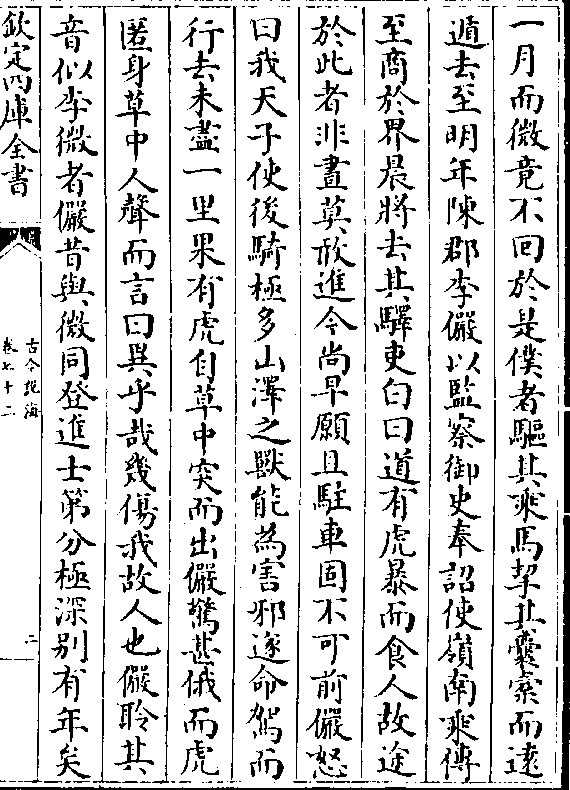 一月而微竟不回於是僕者驅其乘馬挈其囊槖而遠
遁去至明年陳郡李儼以監察御史奉詔使嶺南乘傳
至商於界晨將去其驛吏白曰道有虎暴而食人故途
於此者非晝莫敢進今尚早願且駐車固不可前儼怒
曰我天子使後騎極多山澤之獸能為害邪遂命駕而
行去未盡一里果有虎自草中突而出儼驚甚俄而虎
匿身草中人聲而言曰異乎哉幾傷我故人也儼聆其
音似李微者儼昔與微同登進士第分極深别有年矣
欽定四庫全書
古今說海
卷七十二
二